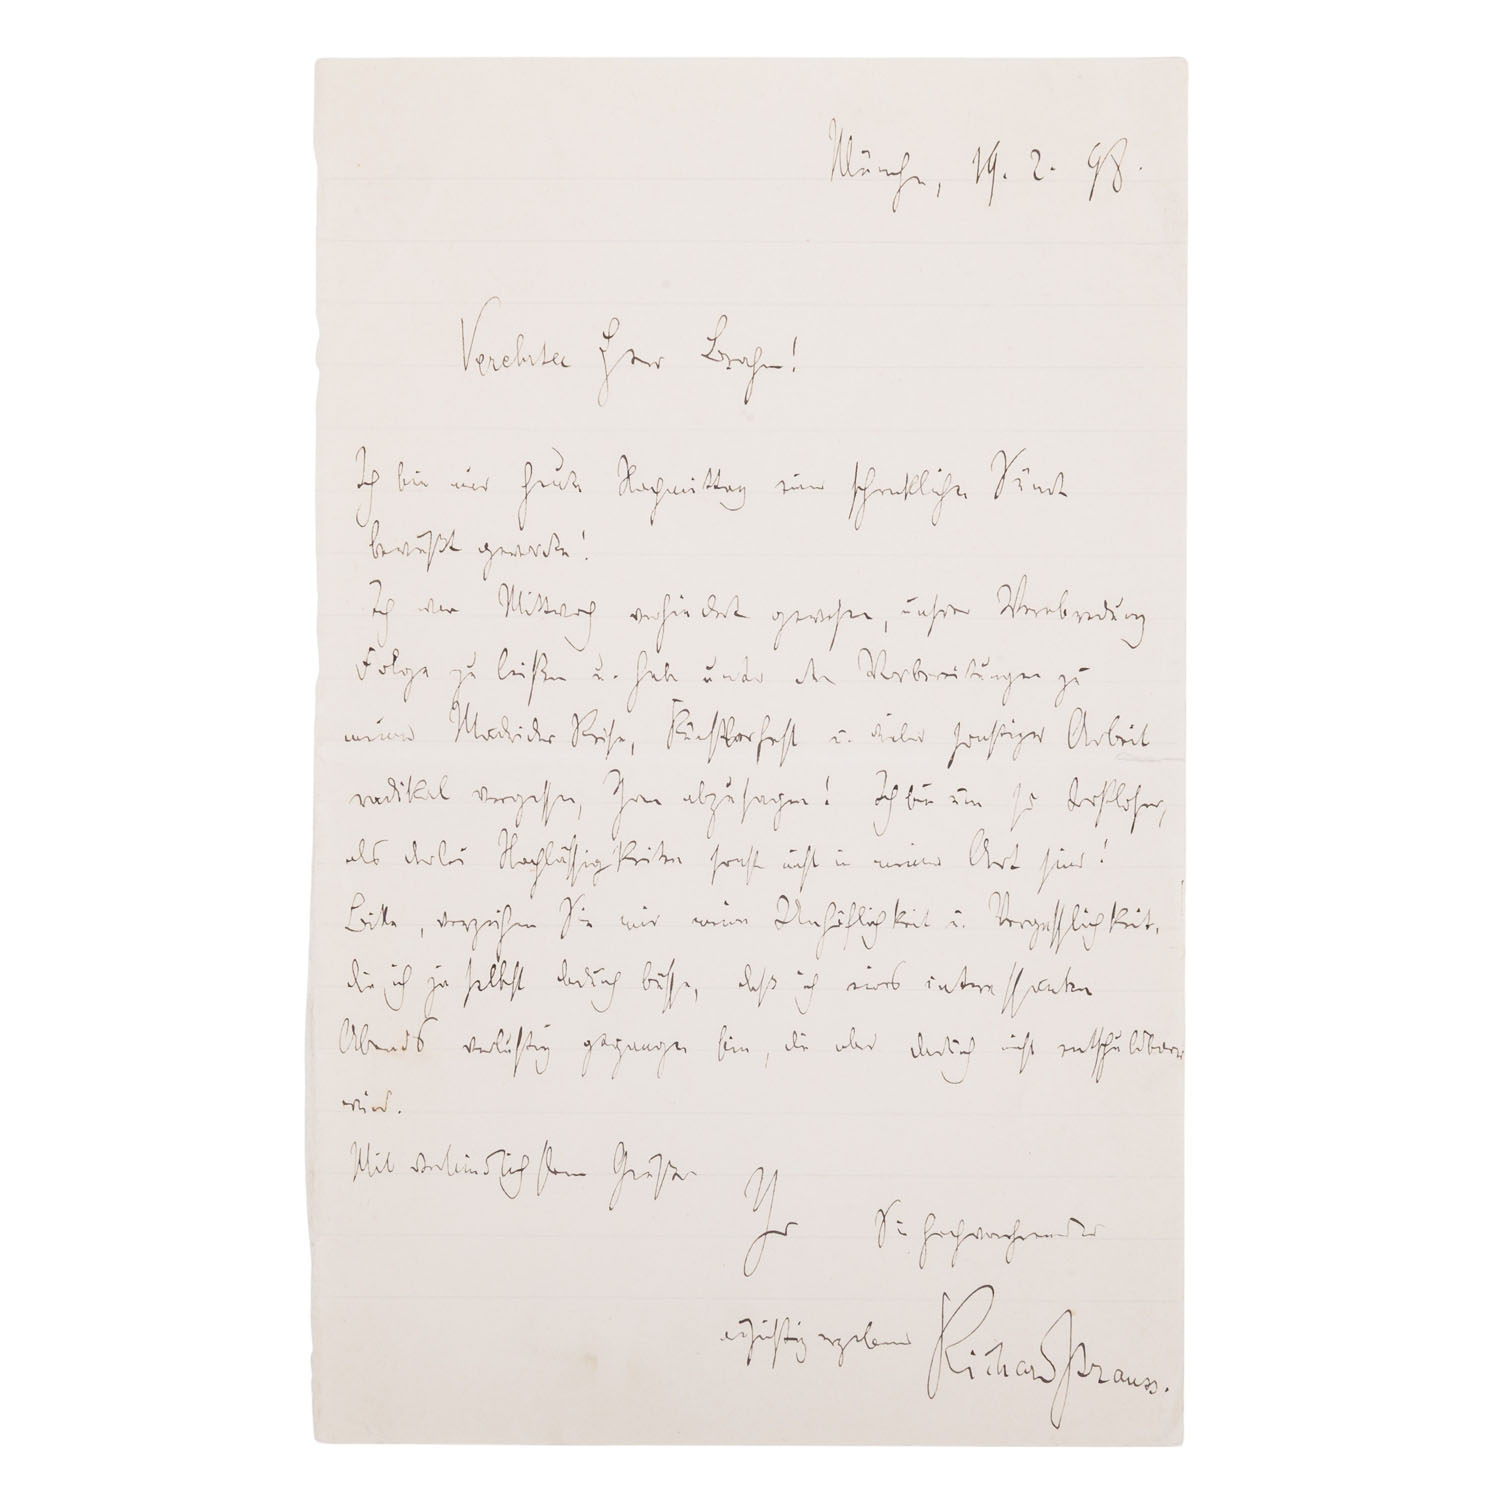 München, 19. 2. 98.
Verehrter Herr Brahm!
Ich bin mir heute Nachmittag einer schrecklichen Sünde
bewußt geworden!
Ich war Mittwoch verhindert gewesen, unsrer Verabredung
Folge zu leisten u. habe unter den Vorbereitungen zu
meiner Madrider Reise, Künstlerfest u. vieler sonstiger Arbeit
radikal vergessen, Ihnen abzusagen! Ich bin um so trostloser,
als derlei Nachlässigkeiten sonst nicht in meiner Art sind!
Bitte, verzeihen Sie mir meine Unhöflichkeit u. Vergesslichkeit,
die ich ja selbst dadurch büsse, daß ich eines interessanten
Abends verlustig gegangen bin, die aber dadurch nicht entschuldbarer
wird.
Mit verbindlichsten Grüßen
Ihr Sie hochverehrender
aufrichtig ergebener Richard Strauss.